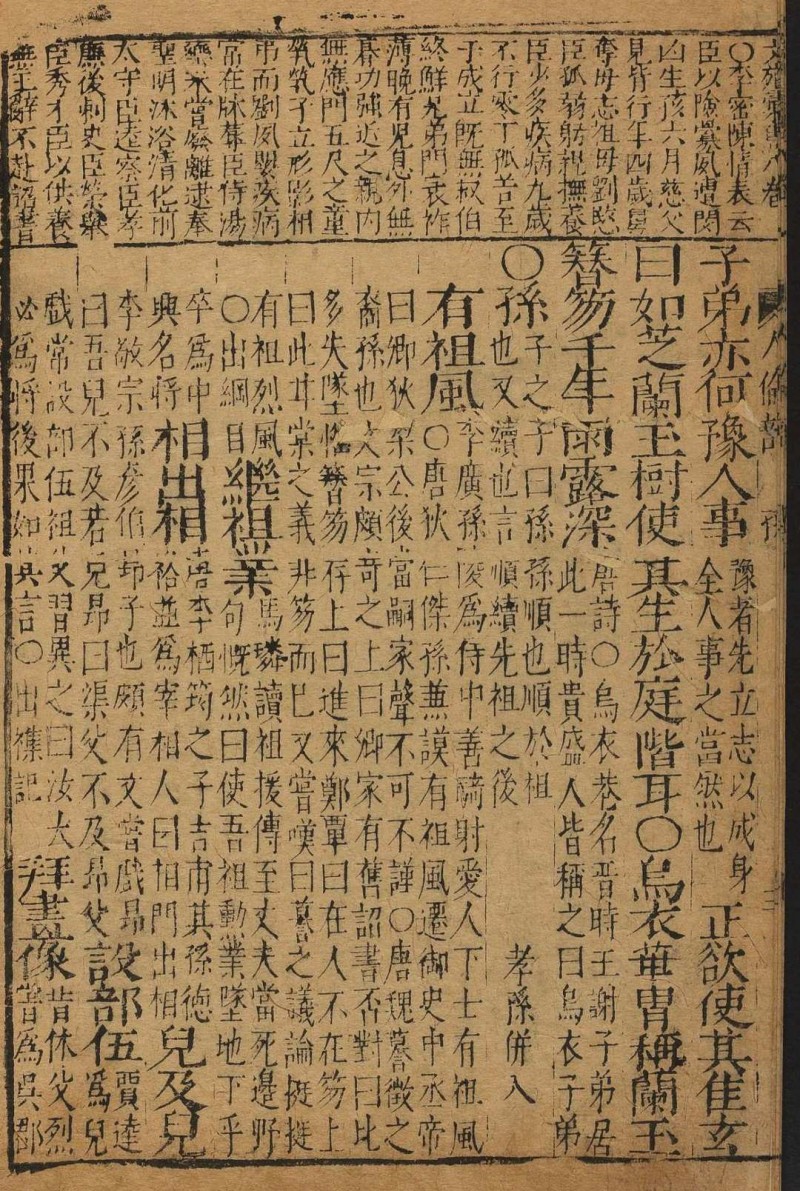 ○李密陳情表云
臣以險釁夙遭閔
凶生孩六月慈父
見背行年四歲舅
奪母志祖母劉愍
臣孤弱躬親撫養
臣少多疾病九歲
不行零丁孤苦至
于成立既無叔伯
終鮮兄弟門衰祚
薄晚有兒息外無
朞功強近之親內
無應門五尺之童
煢煢孑立形影相
弔而劉夙嬰疾病
常在牀蓐臣侍湯
藥未嘗廢離逮奉
聖明沐浴清化前
太守臣逵察臣孝
廉後刺史臣榮舉
臣秀才臣以供養
無主辭不赴詔書
子弟亦何豫人事
豫者先立志以成身
全人事之當然也
正欲使其佳玄
曰如芝蘭玉樹使其生於庭階耳○烏衣華胄稱蘭玉
簪笏千年雨露深
唐詩○烏衣巷名晉時王謝子弟居
此一時貴盛人皆稱之曰烏衣子弟
○孫
子之子曰孫孫順也順於祖
也又續也言順續先祖之後
孝孫併入
有祖風
李廣孫陵為侍中善騎射愛人下士有祖風
○唐狄仁傑孫兼謨有祖風遷御史中丞帝
曰卿狄梁公後當嗣家聲不可不謹○唐魏謩徵之
裔孫也文宗頗奇之上曰卿家有舊詔書否對曰比
多失墜惟簪笏存上曰進來鄭覃曰在人不在笏上
曰此甘棠之義非笏而已又嘗嘆曰謩之議論挺挺
有祖烈風
○出綱目
繼祖業
馬璘讀祖援傳至丈夫當死邊野
句慨然曰使吾祖勳業墜地下乎
卒為中
興名將
相出相
唐李栖筠之子吉甫其孫德
裕並為宰相人曰相門出相
兒及兒
李敬宗孫彥伯昂子也頗有文嘗戲昂
曰吾兒不及若兒昂曰渠父不及昂父
設部伍
賈逵
為兒
戲常設部伍祖父習異之曰汝大
必為將後果如其言○出襍記
拜畫像
昔休父烈
嘗為吳郡